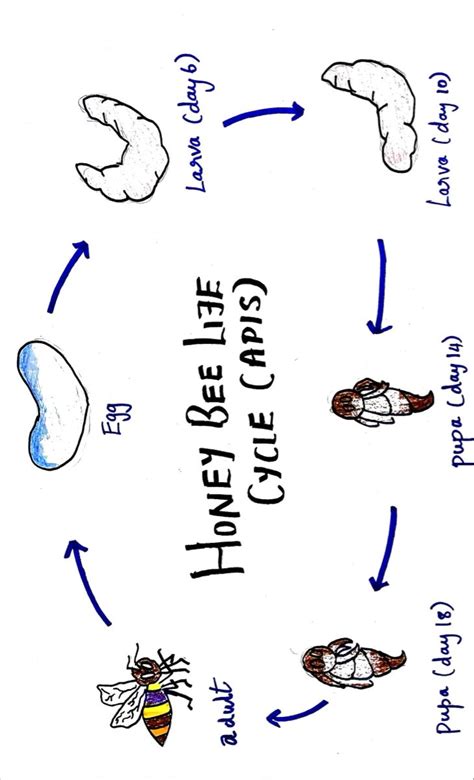 Egg
adult
Larva (day 6)
HONEY BEE LIFE
CYCLE (APIS)
Pupa (day 18)
pupa (day 14)
Larva (day 10)